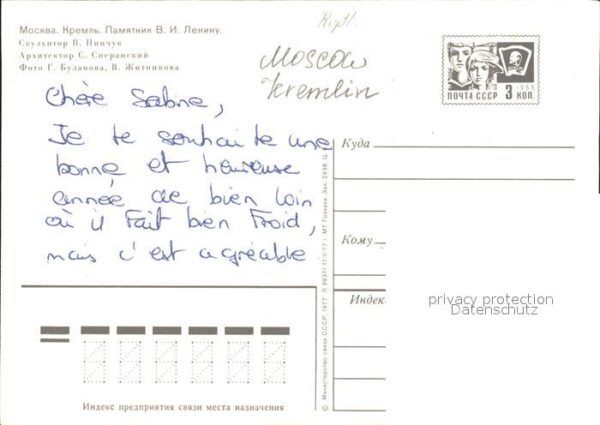 Москва. Кремль. Памятник В. И. Ленину.
Скульптор В. Пинчук
Архитектор С. Сперанский
Фото Г. Буланова, В. Житникова
Moscow
Kremlin
ПОЧТА СССР 3 КОП.
1966
Chère Sabine,
Je te souhaite une
bonne et heureuse
année de bien loin
où il Fait bien Froid,
mais c'est agréable
Куда
Кому
Индекс
privacy protection
Datenschutz
© Министерство связи СССР. 1977
МТ Гознака. Зак. 2438.
Индекс предприятия связи места назначения